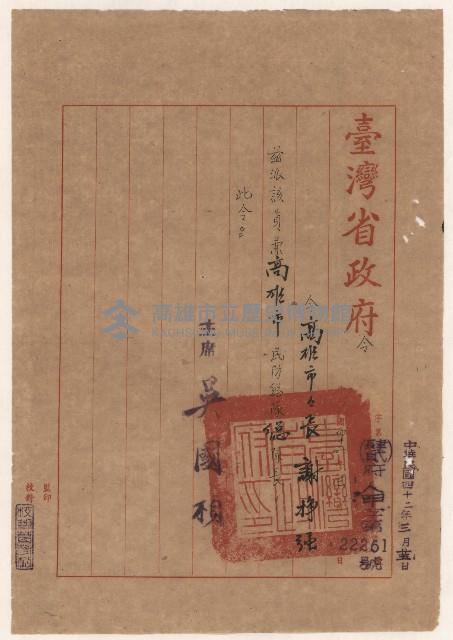 臺灣省政府令
中華民國四十二年三月 日
肆府人
22261號
令高雄市市長謝掙強
茲派該員兼高雄市民防總隊總隊長
此令。
主席吳國楨
監印
校對
高雄市立歷史博物館
KAOHSIUNG MUSEUM OF HISTORY